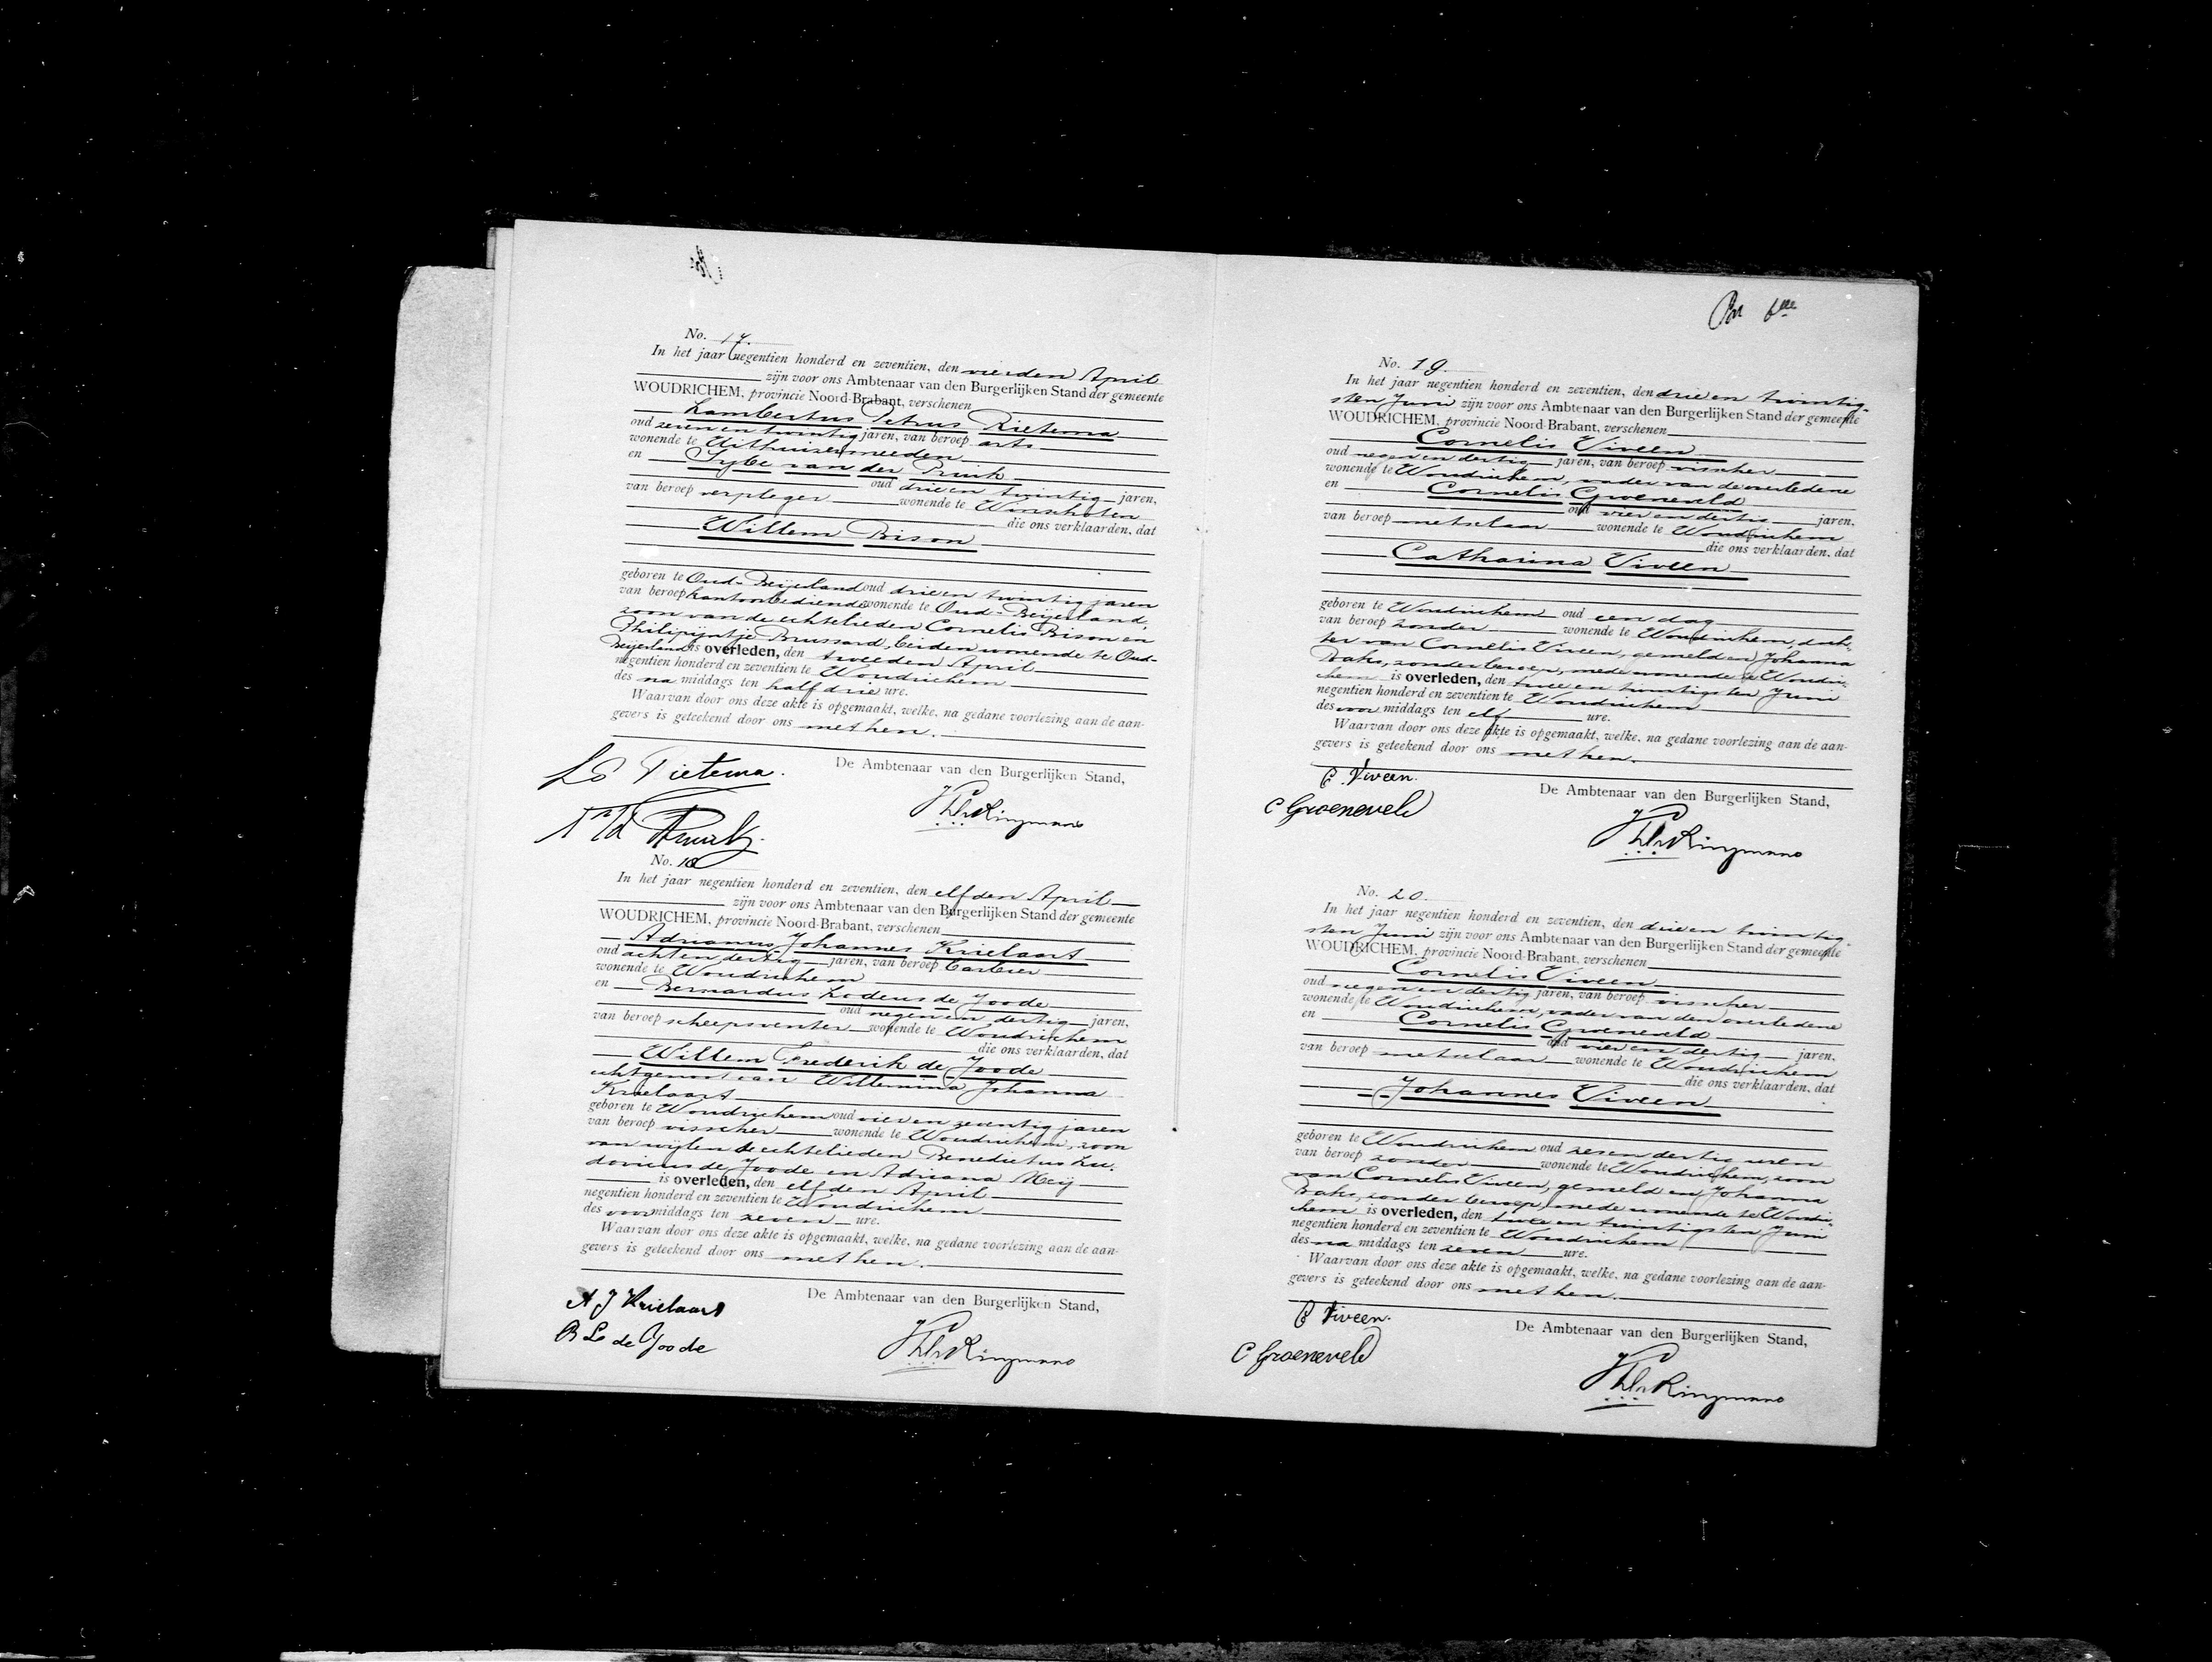 No. 17.
In het jaar negentien honderd en zeventien, den vierden April
zijn voor ons Ambtenaar van den Burgerlijken Stand der gemeente
WOUDRICHEM, provincie Noord-Brabant, verschenen
Lambertus Petrus Tietema
oud zeven en twintig jaren, van beroep arts
wonende te Uithuizermeeden
en Sybe van der Pruik
oud drie en twintig jaren,
van beroep verpleger wonende te Winschoten
die ons verklaarden, dat
Willem Bison
geboren te Oud-Beijerland oud drie en twintig jaren
van beroep kantoorbediende wonende te Oud-Beijerland,
zoon van de echtelieden Cornelis Bison en
Philipijntje Brussard, beiden wonende te Oud-
Beijerland is overleden, den tweeden April
negentien honderd en zeventien te Woudrichem
des na middags ten half drie ure.
Waarvan door ons deze akte is opgemaakt, welke, na gedane voorlezing aan de aan-
gevers is geteekend door ons met hen.
De Ambtenaar van den Burgerlijken Stand,
LP Tietema.
No. 18
In het jaar negentien honderd en zeventien, den elfden April
zijn voor ons Ambtenaar van den Burgerlijken Stand der gemeente
WOUDRICHEM, provincie Noord-Brabant, verschenen
Adrianus Johannes Krielaart
oud acht en dertig jaren, van beroep barbier
wonende te Woudrichem
en Bernardus Lodeus de Joode
oud negen en dertig jaren,
van beroep scheepsventer wonende te Woudrichem
die ons verklaarden, dat
Willem Frederik de Joode
echtgenoot van Willemina Johanna
Krielaart
geboren te Woudrichem oud vier en zeventig jaren
van beroep visscher wonende te Woudrichem, zoon
van wijlen de echtelieden Benedictus Lu-
dovicus de Joode en Adriana Meij
is overleden, den elfden April
negentien honderd en zeventien te Woudrichem
des voor middags ten zeven ure.
Waarvan door ons deze akte is opgemaakt, welke, na gedane voorlezing aan de aan-
gevers is geteekend door ons met hen.
De Ambtenaar van den Burgerlijken Stand,
A J Krielaart
B Lo de Joode
No. 19.
In het jaar negentien honderd en zeventien, den drie en twintig-
sten Juni zijn voor ons Ambtenaar van den Burgerlijken Stand der gemeente
WOUDRICHEM, provincie Noord-Brabant, verschenen
Cornelis Viveen
oud negen en dertig jaren, van beroep visscher
wonende te Woudrichem, vader van de overledene
en Cornelis Groeneveld
oud vier en dertig jaren,
van beroep metselaar wonende te Woudrichem
die ons verklaarden, dat
Catharina Viveen
geboren te Woudrichem oud een dag
van beroep zonder wonende te Woudrichem, doch-
ter van Cornelis Viveen, gemeld en Johanna
Baks, zonder beroep, mede wonende te Woudri-
chem is overleden, den twee en twintigsten Juni
negentien honderd en zeventien te Woudrichem
des voor middags ten elf ure.
Waarvan door ons deze akte is opgemaakt, welke, na gedane voorlezing aan de aan-
gevers is geteekend door ons met hen.
De Ambtenaar van den Burgerlijken Stand,
C. Viveen.
C Groeneveld
No. 20.
In het jaar negentien honderd en zeventien, den drie en twintig-
sten Juni zijn voor ons Ambtenaar van den Burgerlijken Stand der gemeente
WOUDRICHEM, provincie Noord-Brabant, verschenen
Cornelis Viveen
oud negen en dertig jaren, van beroep visscher
wonende te Woudrichem, vader van den overledene
en Cornelis Groeneveld
oud vier en dertig jaren,
van beroep metselaar wonende te Woudrichem
die ons verklaarden, dat
Johannes Viveen
geboren te Woudrichem oud zes en dertig uren
van beroep zonder wonende te Woudrichem, zoon
van Cornelis Viveen, gemeld en Johanna
Baks, zonder beroep, mede wonende te Woudri-
chem is overleden, den twee en twintigsten Juni
negentien honderd en zeventien te Woudrichem
des na middags ten zeven ure.
Waarvan door ons deze akte is opgemaakt, welke, na gedane voorlezing aan de aan-
gevers is geteekend door ons met hen.
De Ambtenaar van den Burgerlijken Stand,
C Viveen.
C Groeneveld